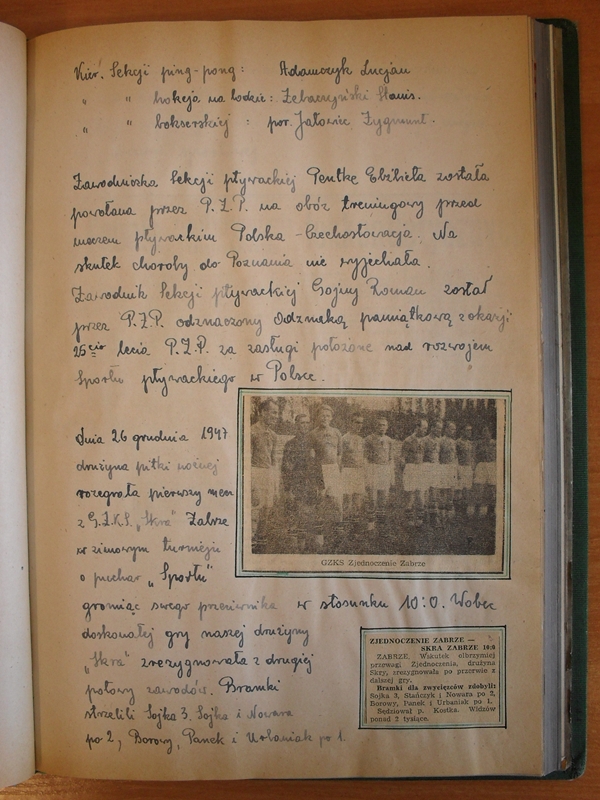 Kier. Sekcji ping-pong: Adamczyk Lucjan
" " hokeja na lodzie: Stanis.
" " bokserskiej : por. Jałowiec Zygmunt.
Zawodniczka Sekcji pływackiej Pentke Elżbieta została
powołana przez P.Z.P. na obóz treningowy przed
meczem pływackim Polska - Czechosłowacja. Na
skutek choroby do Poznania nie wyjechała.
Zawodnik Sekcji pływackiej Gojny Roman został
przez P.Z.P. odznaczony Odznaką pamiątkową z okazji
25 cio lecia P.Z.P. za zasługi położone nad rozwojem
Sportu pływackiego w Polsce.
dnia 26 grudnia 1947
drużyna piłki nożnej
rozegrała pierwszy mecz
z G.Z.K.S. „Skra" Zabrze
w zimowym turnieju
o puchar „Sportu"
gromiąc swego przeciwnika w stosunku 10:0. Wobec
doskonałej gry naszej drużyny
„Skra" zrezygnowała z drugiej
połowy zawodów. Bramki
strzelili Sojka 3. Sojka i Nowara
po 2, Borowy, Panek i Urbaniak po 1.
GZKS Zjednoczenie Zabrze
ZJEDNOCZENIE ZABRZE —
SKRA ZABRZE 10:0
ZABRZE. Wskutek olbrzymiej
przewagi Zjednoczenia, drużyna
Skry, zrezygnowała po przerwie z
dalszej gry.
Bramki dla zwycięzców zdobyli:
Sojka 3, Stańczyk i Nowara po 2,
Borowy, Panek i Urbaniak po 1.
Sędziował p. Kostka. Widzów
ponad 2 tysiące.